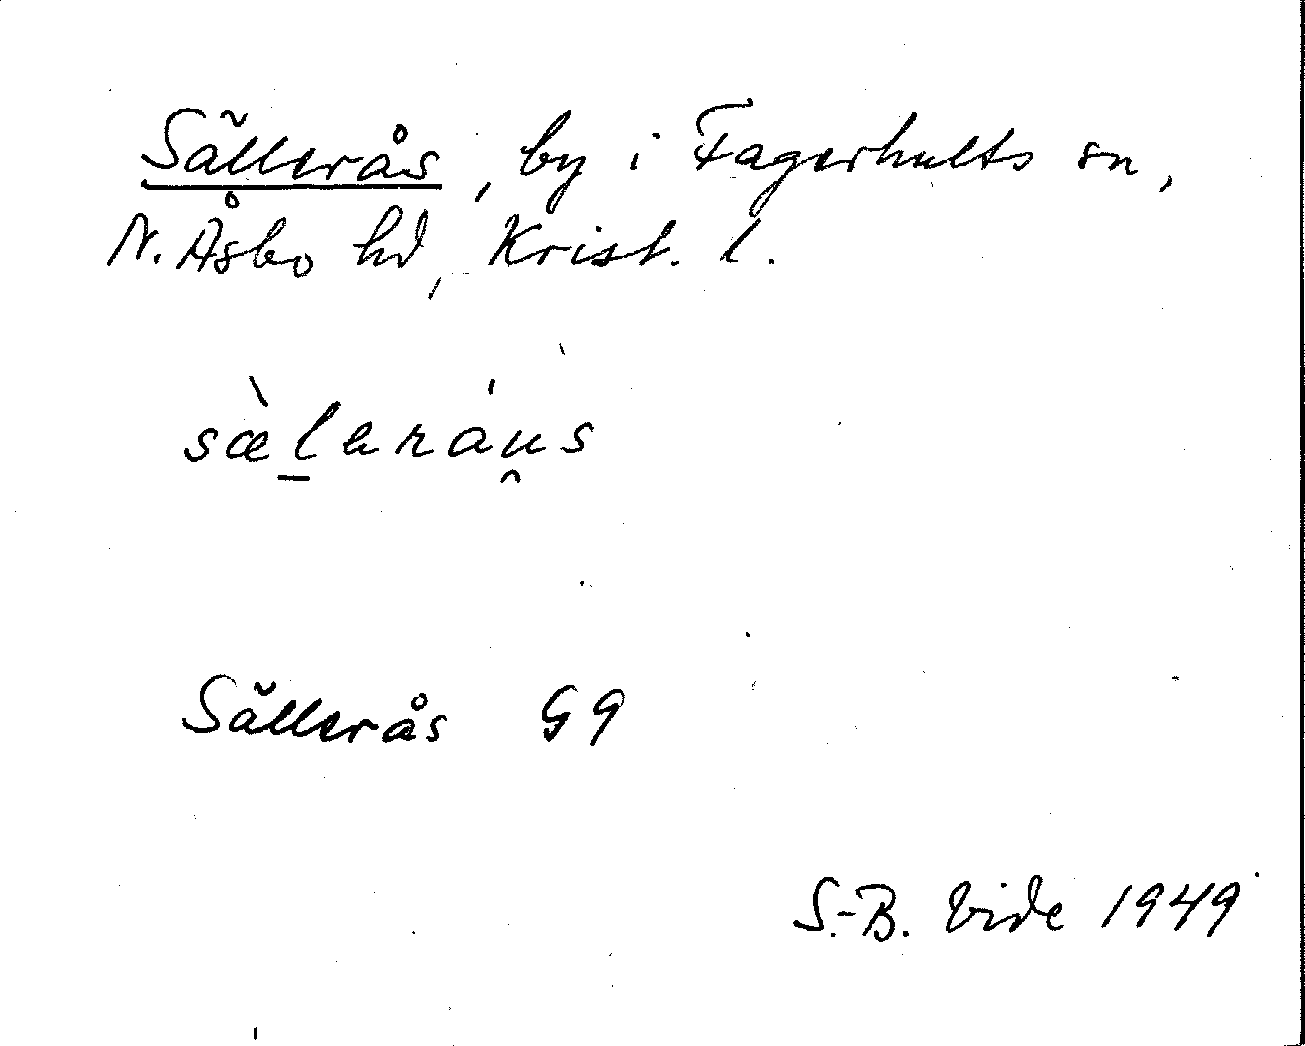 Sällerås, by i Fagerhults sn,
N. Åsbo hd, Krist. l.
sæ̀l̲eráu̯s
Sällerås G9
S.-B. Vide 1949